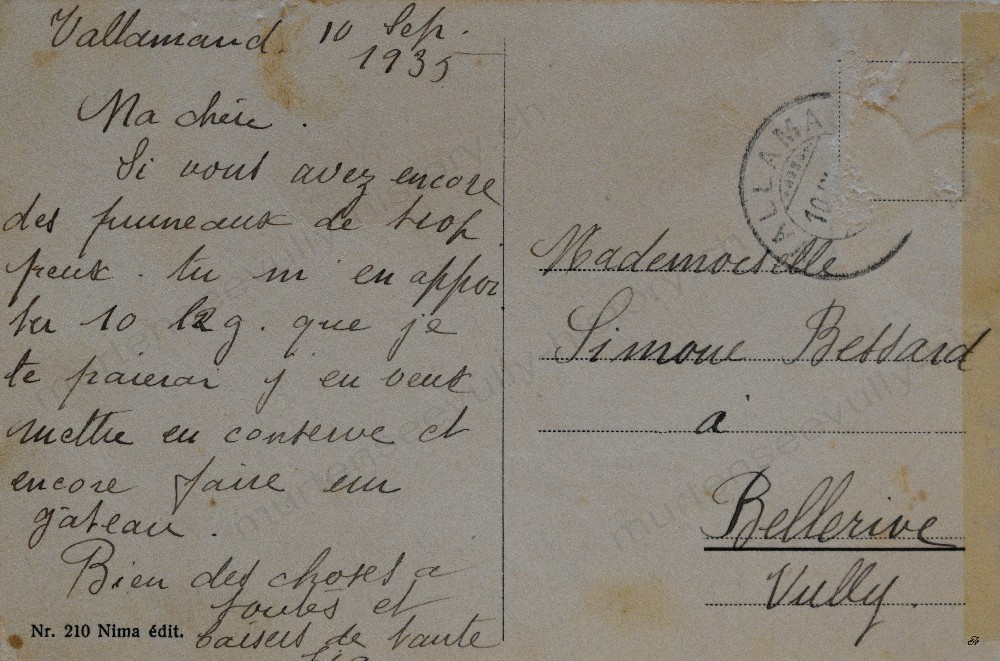 Vallamand 10 Sep.
1935
Ma chère.
Si vous avez encore
des pruneaux de trop
peux. tu m'en appor
ter 10 kg. que je
te paierai j en veux
mettre en conserve et
encore faire un
gâteau.
Bien des choses a
toutes et
baisers de tante
Nr. 210 Nima édit.
VALLAMA
10
Mademoiselle
Simone Bessard
à
Bellerive
Vully.
murtenseevully.history.ch
murtenseevully.history.ch
murtenseevully.history.ch